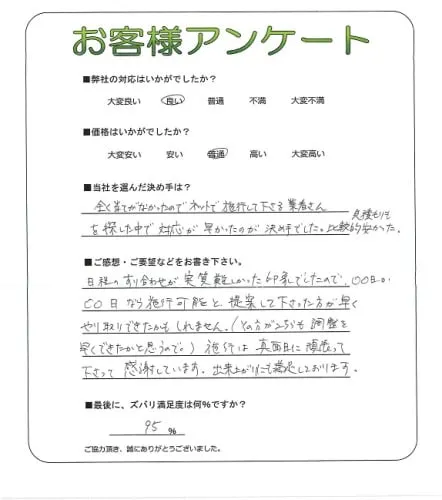 お客様アンケート
■弊社の対応はいかがでしたか?
大変良い 良い 普通 不満 大変不満
■価格はいかがでしたか?
大変安い 安い 普通 高い 大変高い
■当社を選んだ決め手は?
全く当てがなかったのでネットで施行して下さる業者さん
を探した中で対応が早かったのが決め手でした。比較的安かった。
見積もりも
■ご感想・ご要望などをお書き下さい。
日程のすり合わせが実質難しかった印象でしたので、〇〇日か
〇〇日なら施行可能と提案して下さった方が早く
やり取りできたかもしれません。(その方がこちらも調整を
早くできたかと思うので。)施行は真面目に頑張って
下さって感謝しています。出来上がりにも満足しております。
■最後に、ズバリ満足度は何%ですか?
95 %
ご協力頂き、誠にありがとうございました。